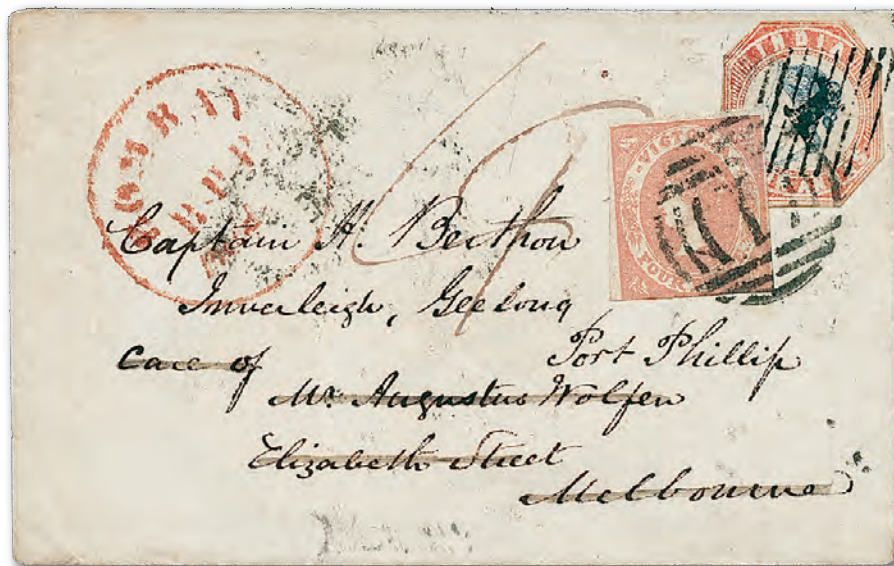 INDIA
VICTORIA
FOUR
Captain H. Berthon
Inverleigh, Geelong
Port Phillip
Care of
Mr. Augustus Wolfen
Elizabeth Street
Melbourne